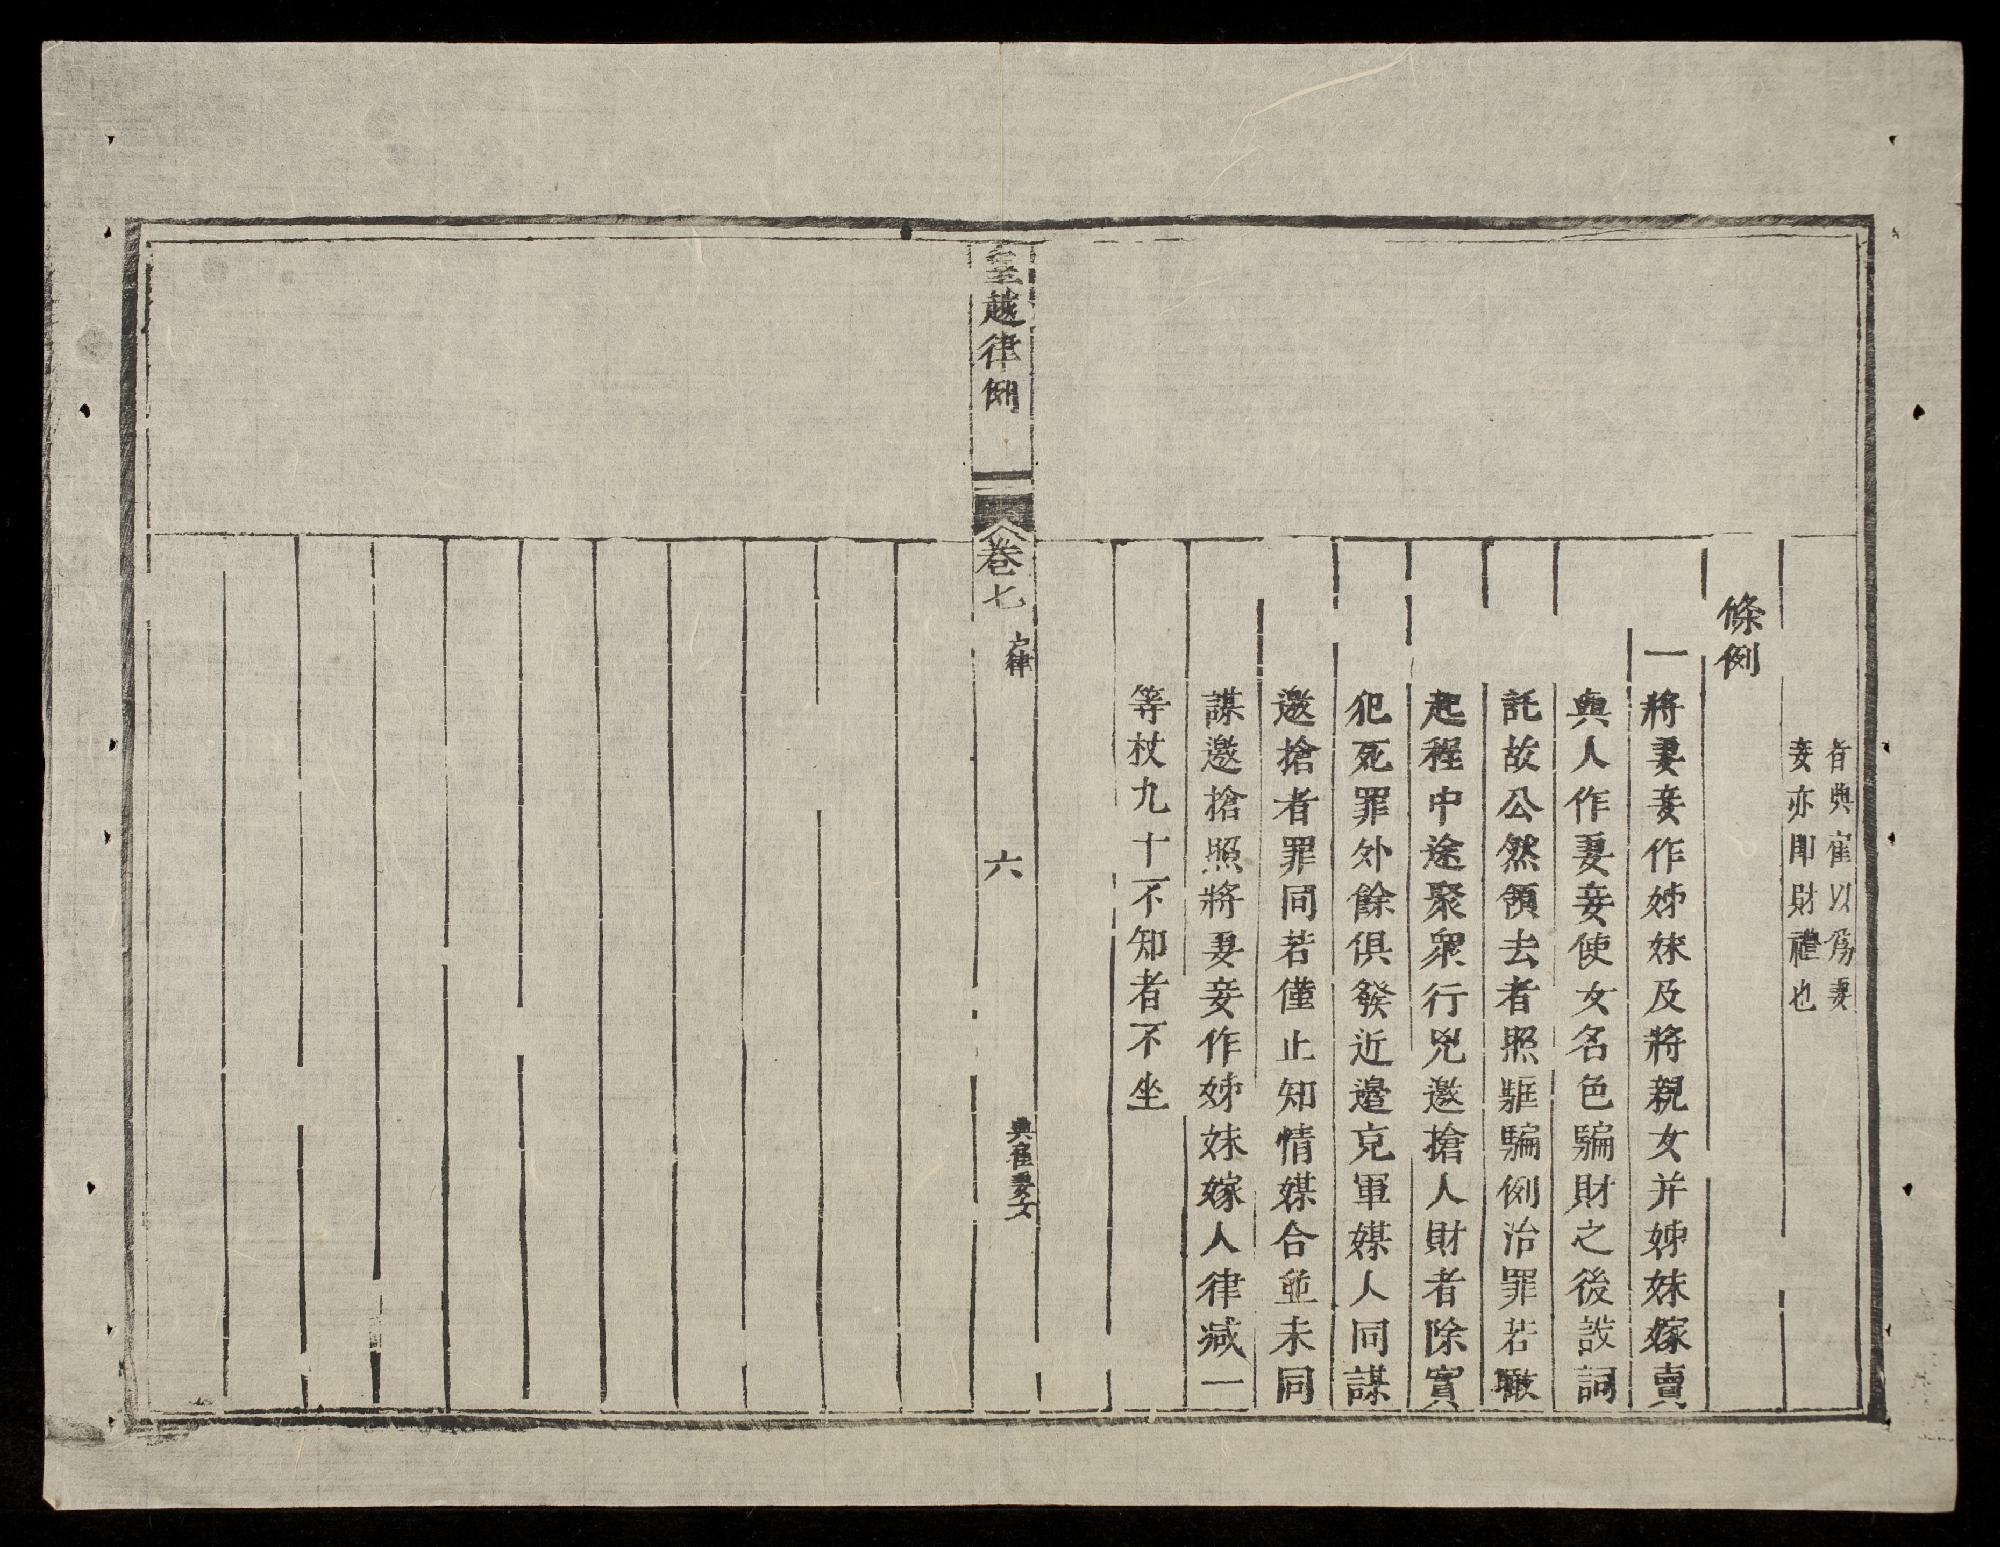 者典雇以爲妻
妾亦即財禮也
條例
一將妻妾作姊妹及將親女并姊妹嫁賣
與人作妻妾使女名色騙財之後設詞
託故公然領去者照誆騙例治罪若瞰
起程中途聚衆行兇邀搶人財者除實
犯死罪外餘俱發近邊充軍媒人同謀
邀搶者罪同若僅止知情媒合並未同
謀邀搶照將妻妾作姊妹嫁人律減一
等杖九十不知者不坐
皇越律例
卷七
戶律
六
典雇妻女